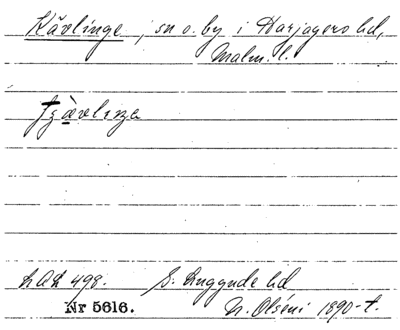 Kävlinge, sn o. by i Harjagers hd,
Malm. l.
LAL 498. S. Luggude hd
Nr 5616. N. Olséni 1890-t.